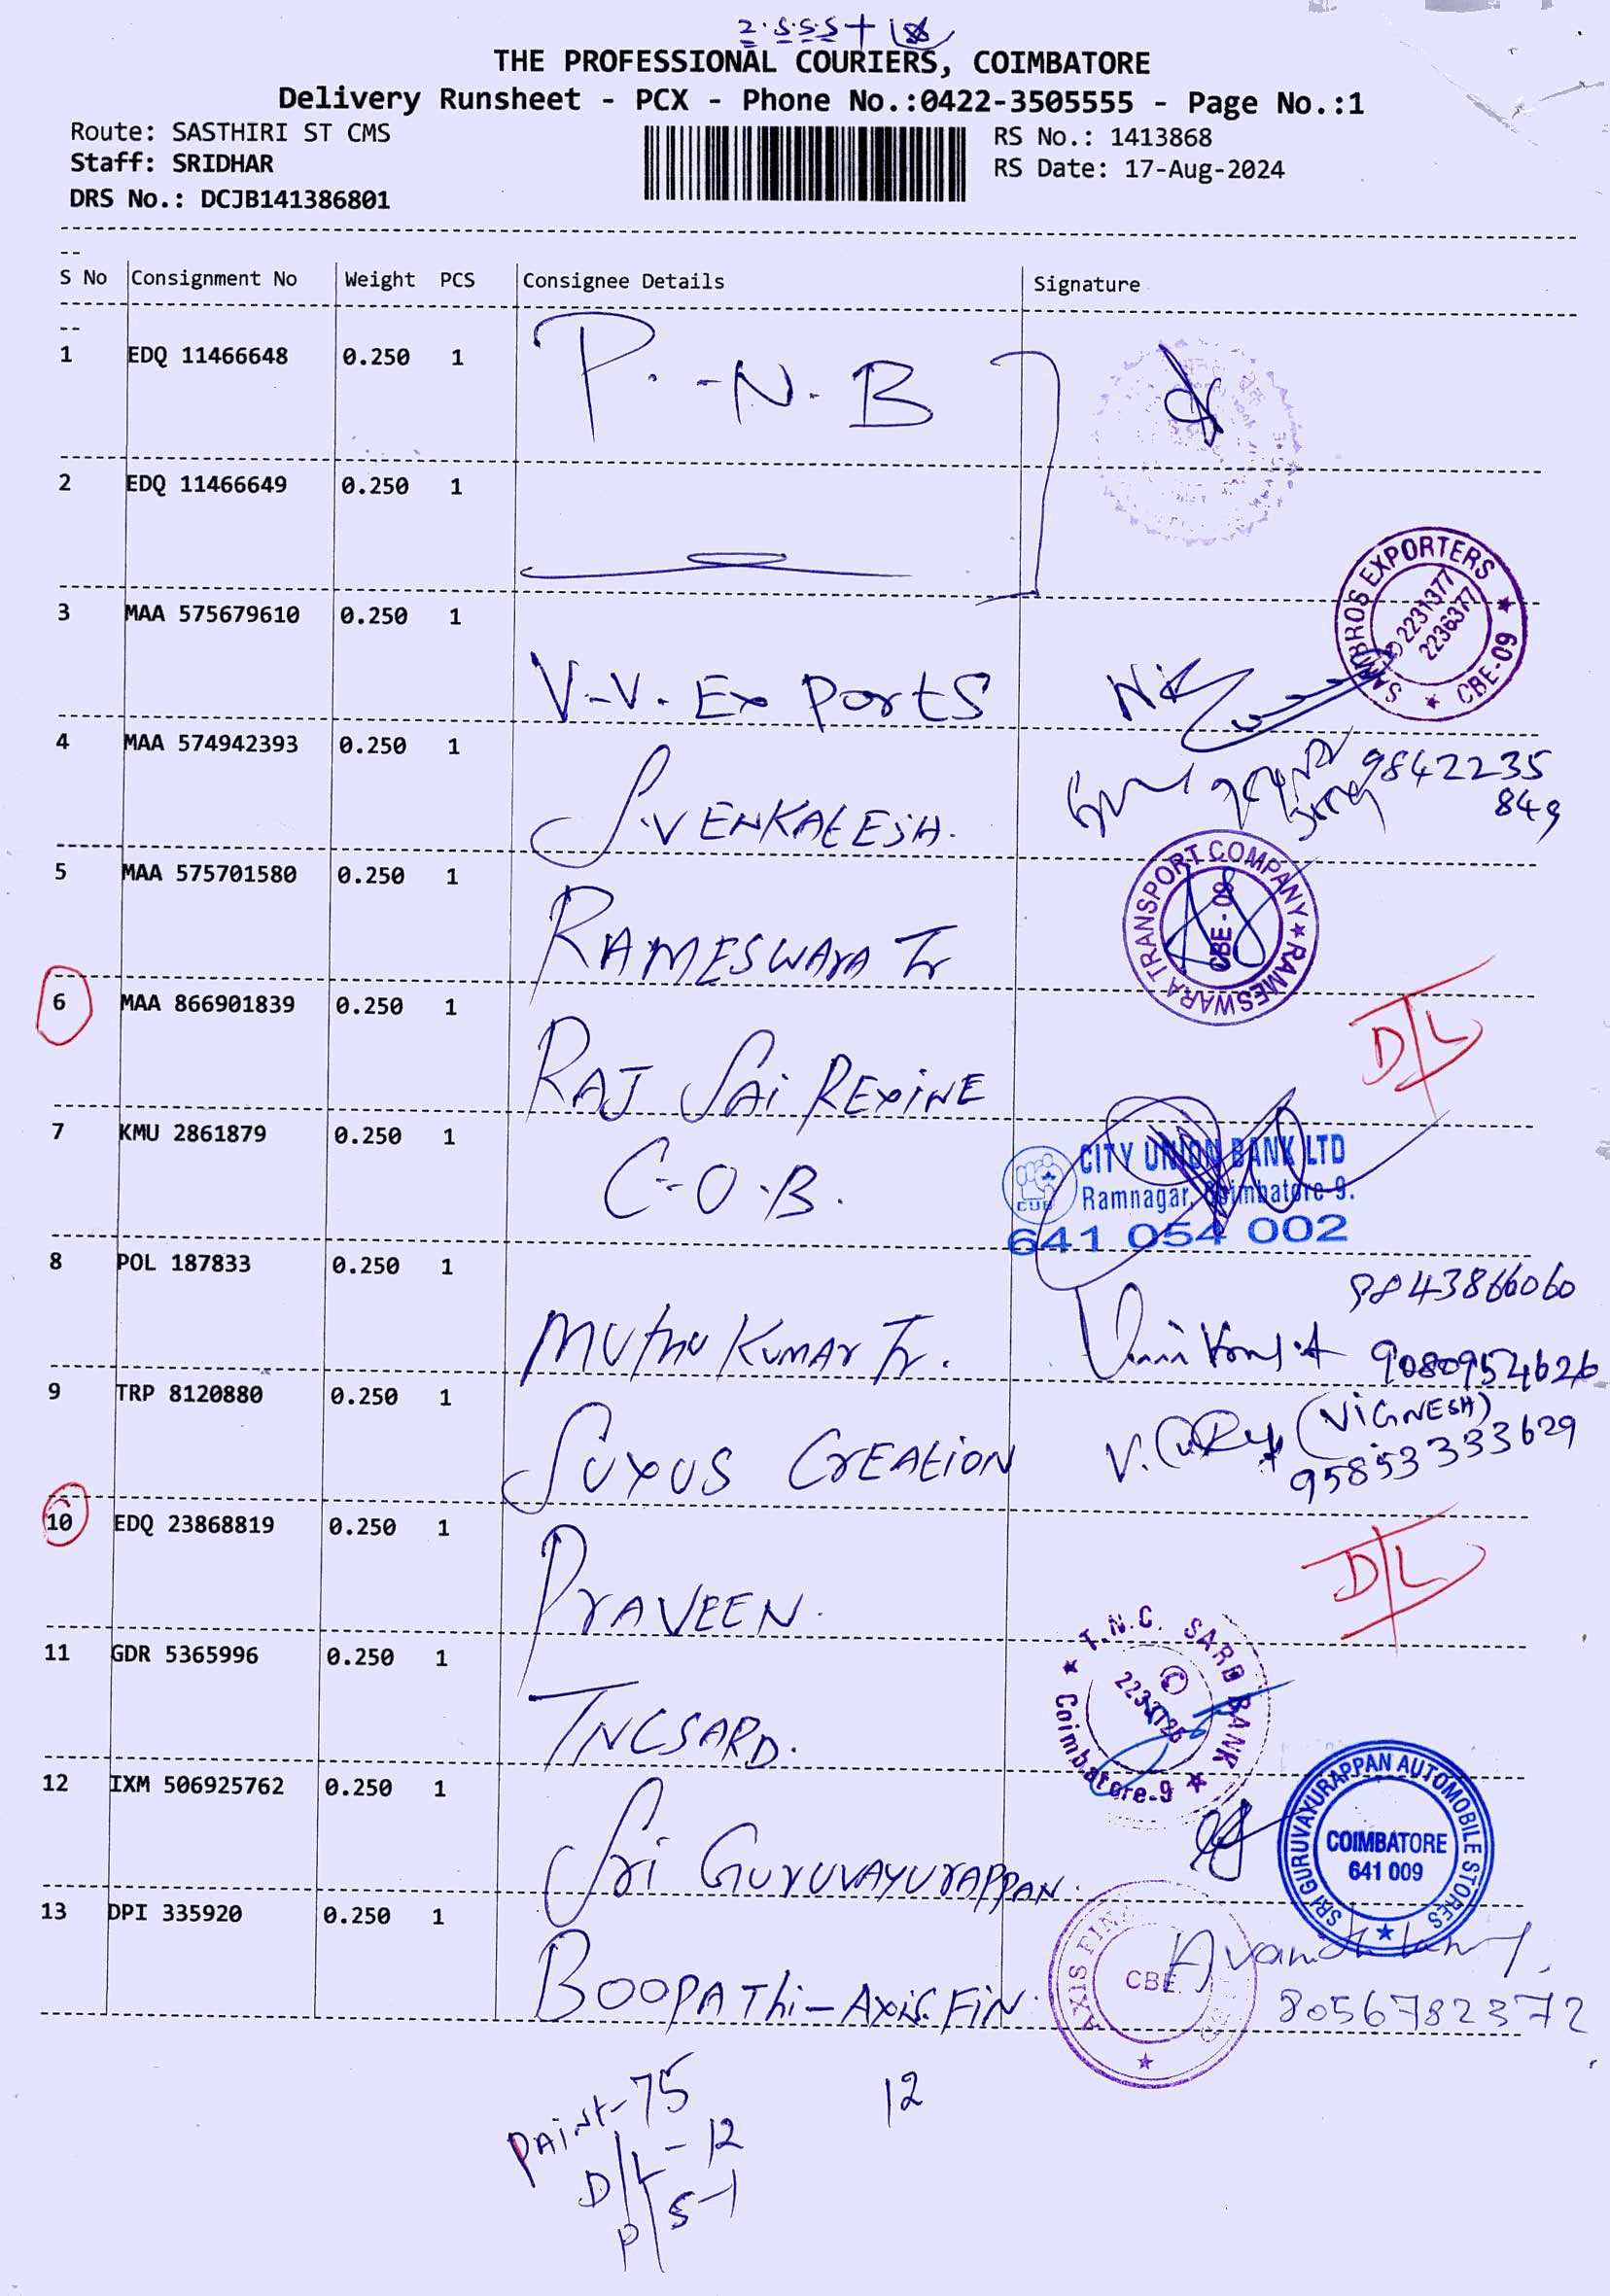 THE PROFESSIONAL COURIERS, COIMBATORE
Delivery Runsheet - PCX - Phone No.:0422-3505555 - Page No.:1
Route: SASTHIRI ST CMS
Staff: SRIDHAR
DRS No.: DCJB141386801
RS No.: 1413868
RS Date: 17-Aug-2024
S No Consignment No Weight PCS Consignee Details Signature
1 EDQ 11466648 0.250 1 P.-N.B
2 EDQ 11466649 0.250 1
3 MAA 575679610 0.250 1 V.-V. Ex Ports
SAMBROS EXPORTERS ★ CBE-09 ★
2231377
2236377
4 MAA 574942393 0.250 1 S.VENKAtESH.
9842235
849
5 MAA 575701580 0.250 1 RAMESWArA Tr
RAMESWARA TRANSPORT COMPANY ★
CBE - 09
6 MAA 866901839 0.250 1 RAJ SAi RExiNE
D/L
7 KMU 2861879 0.250 1 C.O.B.
CITY UNION BANK LTD
Ramnagar, Coimbatore-9.
CUB
641 054 002
8 POL 187833 0.250 1 Muthu KuMAr Tr.
9843866060
9080954626
9 TRP 8120880 0.250 1 SUXUS CrEAtiON
(ViGNESH)
9585333629
10 EDQ 23868819 0.250 1 PrAVEEN.
D/L
11 GDR 5365996 0.250 1 TNCSARD.
★ T.N.C. SARD BANK ★ Coimbatore-9
12 IXM 506925762 0.250 1 Sri GuruvAYurAPPAN.
SRI GURUVAYURAPPAN AUTOMOBILE STORES ★
COIMBATORE
641 009
13 DPI 335920 0.250 1 BOOPAThi-Axis.FiN.
AXIS FIN
CBE
8056782372
PAiNt-75
D/L-12
P/S-1
12